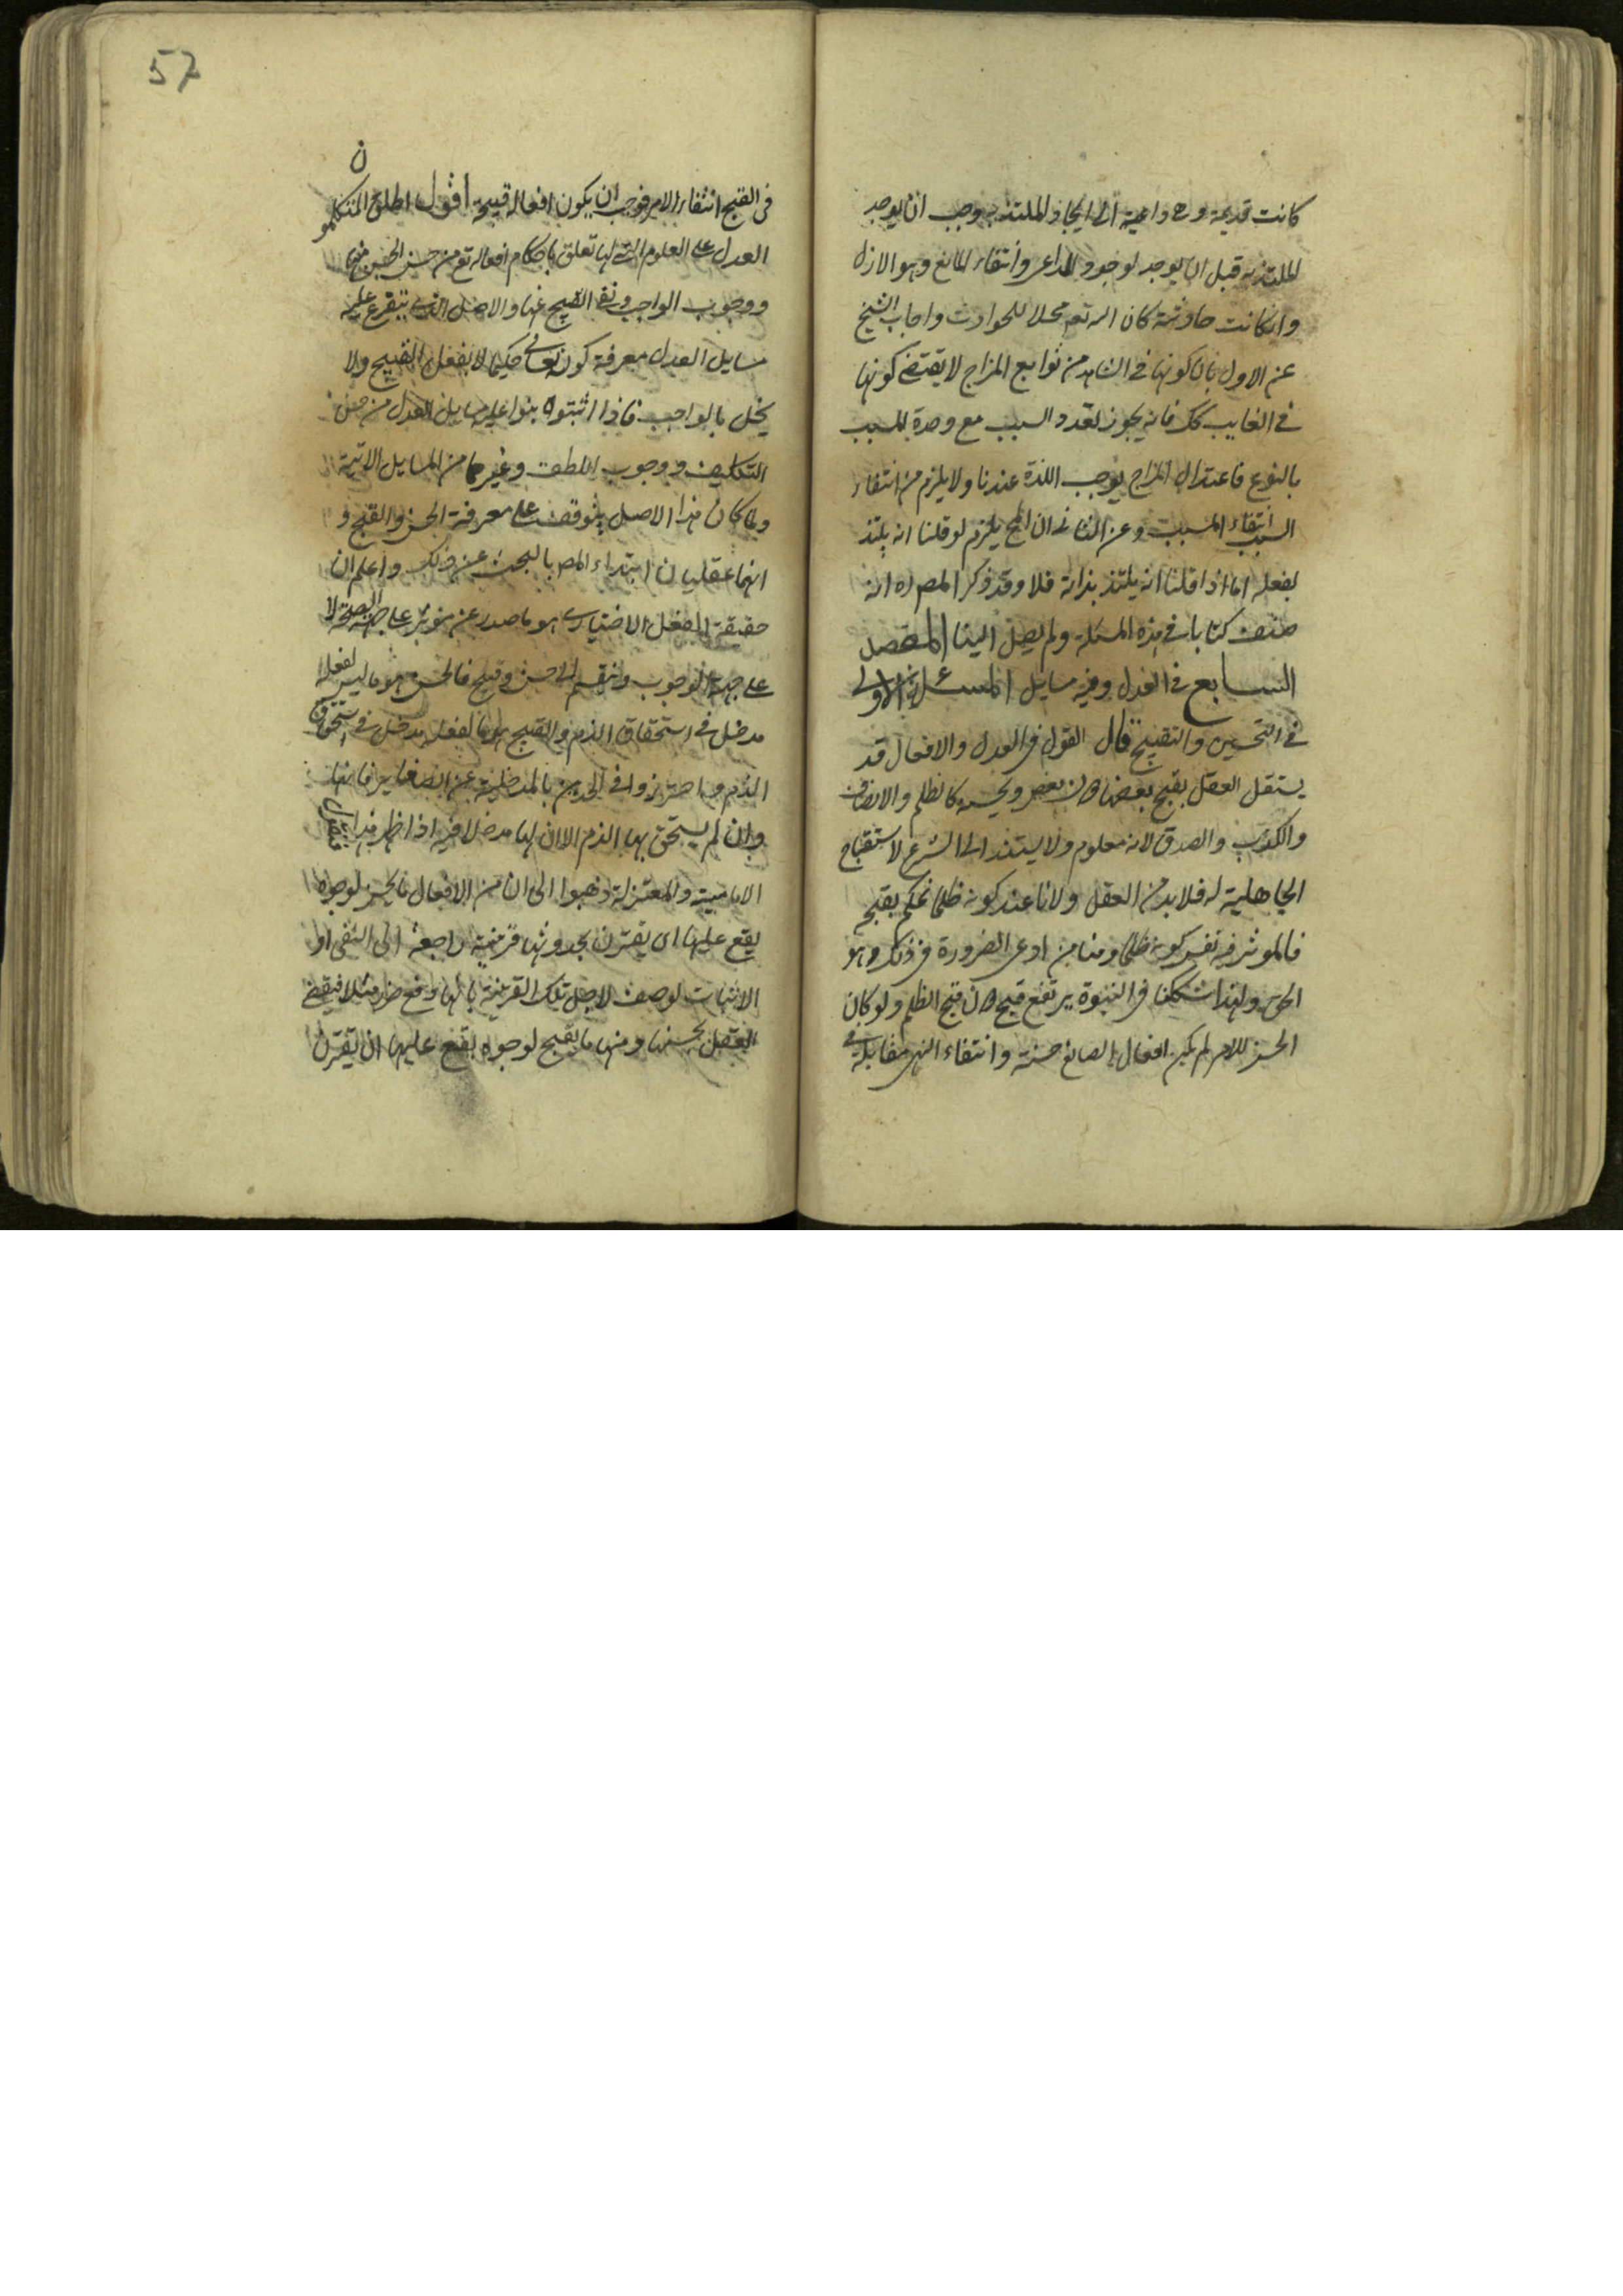 كانت قديمة وهى داعية الى ايجاد الملتذ به وجب ان يوجد
الملتذ به قبل ان يوجد لوجود الداعى وانتفاء المانع وهو الازل
وان كانت حادثة كان الله تع محلا للحوادث واجاب الشيخ
عن الاول بان كونها فى الشاهد من توابع المزاج لا يقتضى كونها
فى الغايب كك فانه يجوز تعدد السبب مع وحدة المسبب
بالنوع فاعتدال المزاج يوجب اللذة عندنا ولا يلزم من انتفاء
السبب انتفاء المسبب وعن الثانى ان المح يلزم لو قلنا انه يلتذ
بفعله اما اذا قلنا انه يلتذ بذاته فلا وقد ذكر المصر ره انه
صنف كتابا فى هذه المسئلة ولم يصل الينا المقصد
السابع فى العدل وفيه مسايل المسئلة الاولى
فى التحسين والتقبيح قال القول فى العدل والافعال قد
يستقل العقل بقبح بعضها دون بعض ويحسنه كالظلم والانصاف
والكذب والصدق لانه معلوم ولا يستند الى الشرع لاستقباح
الجاهلية له فلا بد من العقل ولانا عند كونه ظلما نحكم بقبحه
فالموثر فيه نفس كونه ظلما ومنا من ادعى الضرورة فى ذلك وهو
الحق ولهذا شككنا فى النبوة يرتفع قبح دون قبح الظلم ولو كان
الحسن للامر لم يكن افعال الصانع حسنة وانتفاء النهى مقابله فى
57
فى القبح انتفاء الامر فوجب ان يكون افعاله قبيحة اقول اطلق المتكلمون
العدل على العلوم التى لها تعلق باحكام افعاله تع من حسن الحسن منها
ووجوب الواجب ونفى القبيح عنها والاصل الذى يتفرع عليه
مسايل العدل معرفة كونه تعالى حكيما لا يفعل القبيح ولا
يخل بالواجب فاذا اثبتوه بنوا عليه مسايل العدل من حسن
التكليف ووجوب اللطف وغيرهما من المسايل الاتية
ولما كان هذا الاصل يتوقف على معرفة الحسن والقبح و
انهما عقليان ابتداء المصر بالبحث عن ذلك واعلم ان
حقيقة الفعل الاختيارى هو ما صدر عن موثر على جهة الصحة لا
على جهة الوجوب وانقسم الى حسن وقبيح فالحسن هو ما ليس لفعله
مدخل فى استحقاق الذم والقبيح هو ما لفعله مدخل فى استحقاق
الذم واحترزوا فى الحدين بالمدخلية عن الصغاير فانها
وان لم يستحق بها الذم الا ان لها مدخلا فيه اذا ظهر هذا فنقول
الامامية والمعتزلة ذهبوا الى ان من الافعال ما يحسن لوجوه
يقع عليها اى يقترن بحدوثها قرينة راجعة الى النفى او
الاثبات لوصف لاجل تلك القرينة بانها دفع ضرر مثلا فيقضى
العقل بحسنها ومنها ما يقبح لوجوه يقع عليها ان يقترن